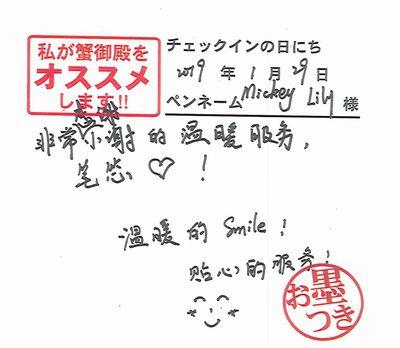 私が蟹御殿を
オススメ
します!!
チェックインの日にち
2019 年 1 月 29 日
ペンネーム Mickey Lily 様
非常 谢的温暖服务,
笔 ♡ !
温暖的 Smile!
贴心的服务!
お墨つき